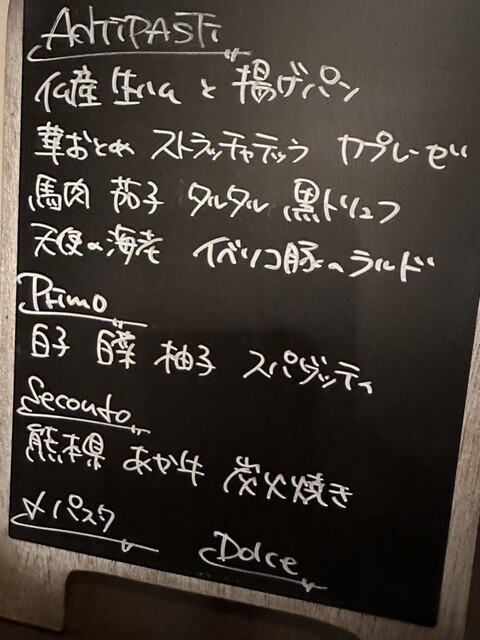 ANTIPASTi
産 生ハムと 揚げパン
華おとめ ストラッチャテッラ カプレーゼ
馬肉 茄子 タルタル 黒トリュフ
天使の海老 イベリコ豚のラルド
Primo
白子 白菜 柚子 スパゲッティ
Secondo
熊本県 あか牛 炭火焼き
〆パスタ
Dolce